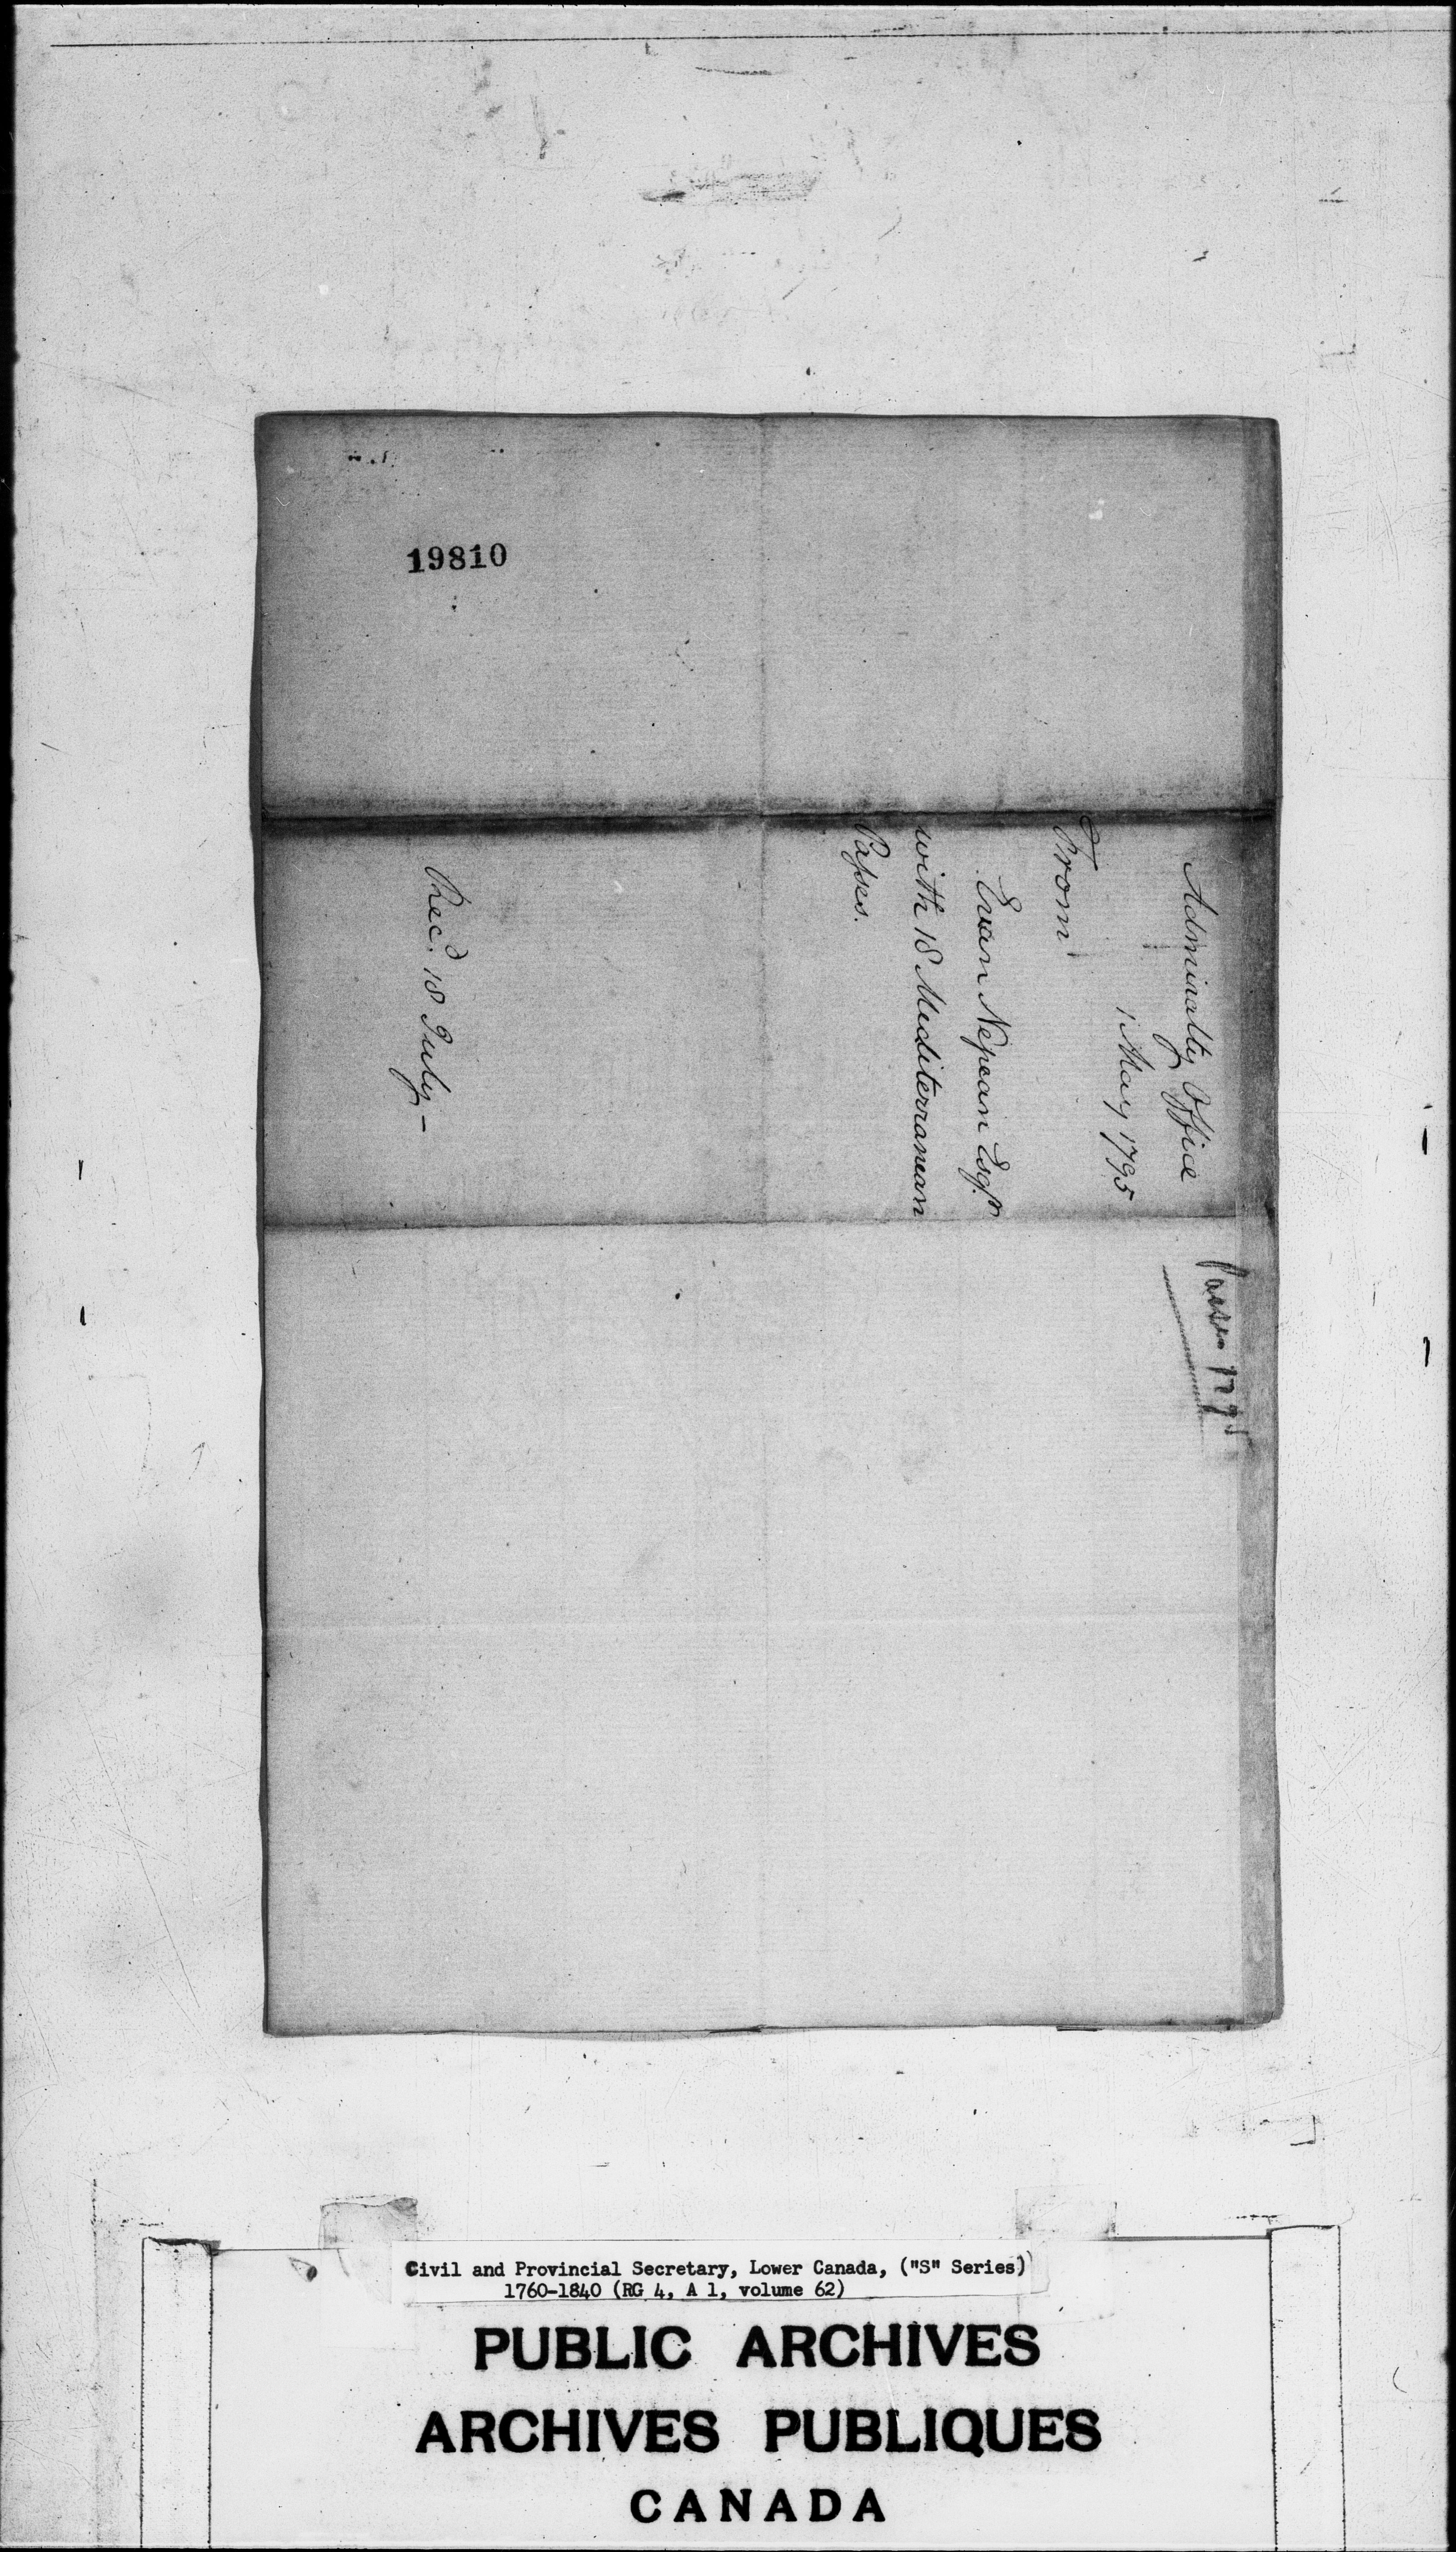 19810
Admiralty Office
1 May 1795
From
Evan Nepean Esqr.
with 18 Mediterranean
Passes.
Recd. 18 July –
1795
Civil and Provincial Secretary, Lower Canada, ("S" Series)
1760-1840 (RG 4, A 1, volume 62)
PUBLIC ARCHIVES
ARCHIVES PUBLIQUES
CANADA